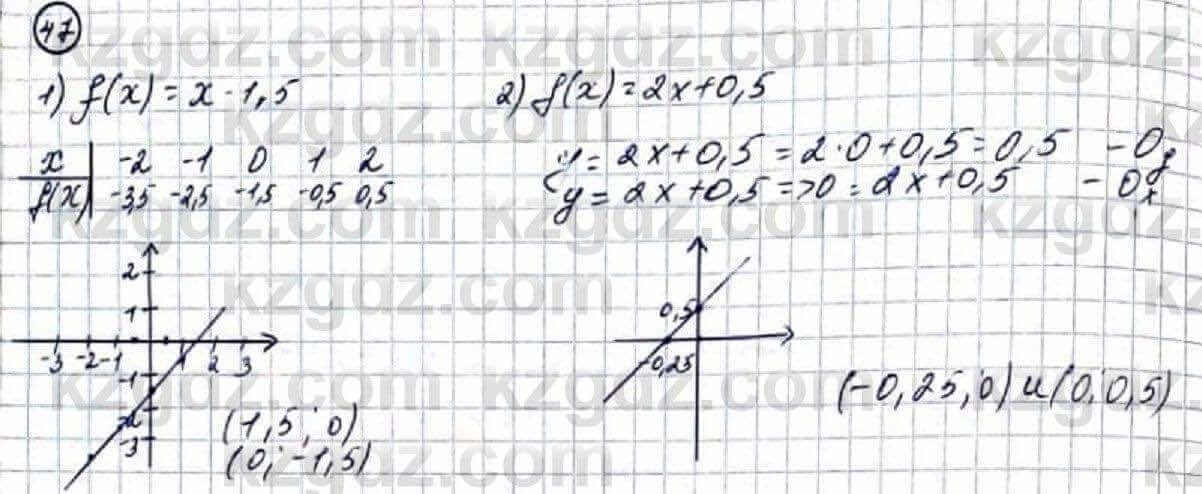 47
1) f(x) = x - 1,5
x -2 -1 0 1 2
f(x) -3,5 -2,5 -1,5 -0,5 0,5
2
1
-3 -2 -1 1 2 3
-1
-2
-3
(1,5; 0)
(0; -1,5)
2) f(x) = 2x+0,5
y = 2x+0,5 = 2·0+0,5 = 0,5 - Oy
y = 2x+0,5 => 0 = 2x+0,5 - Ox
0,5
-0,25
(-0,25; 0) и (0; 0,5)
kzgdz.com